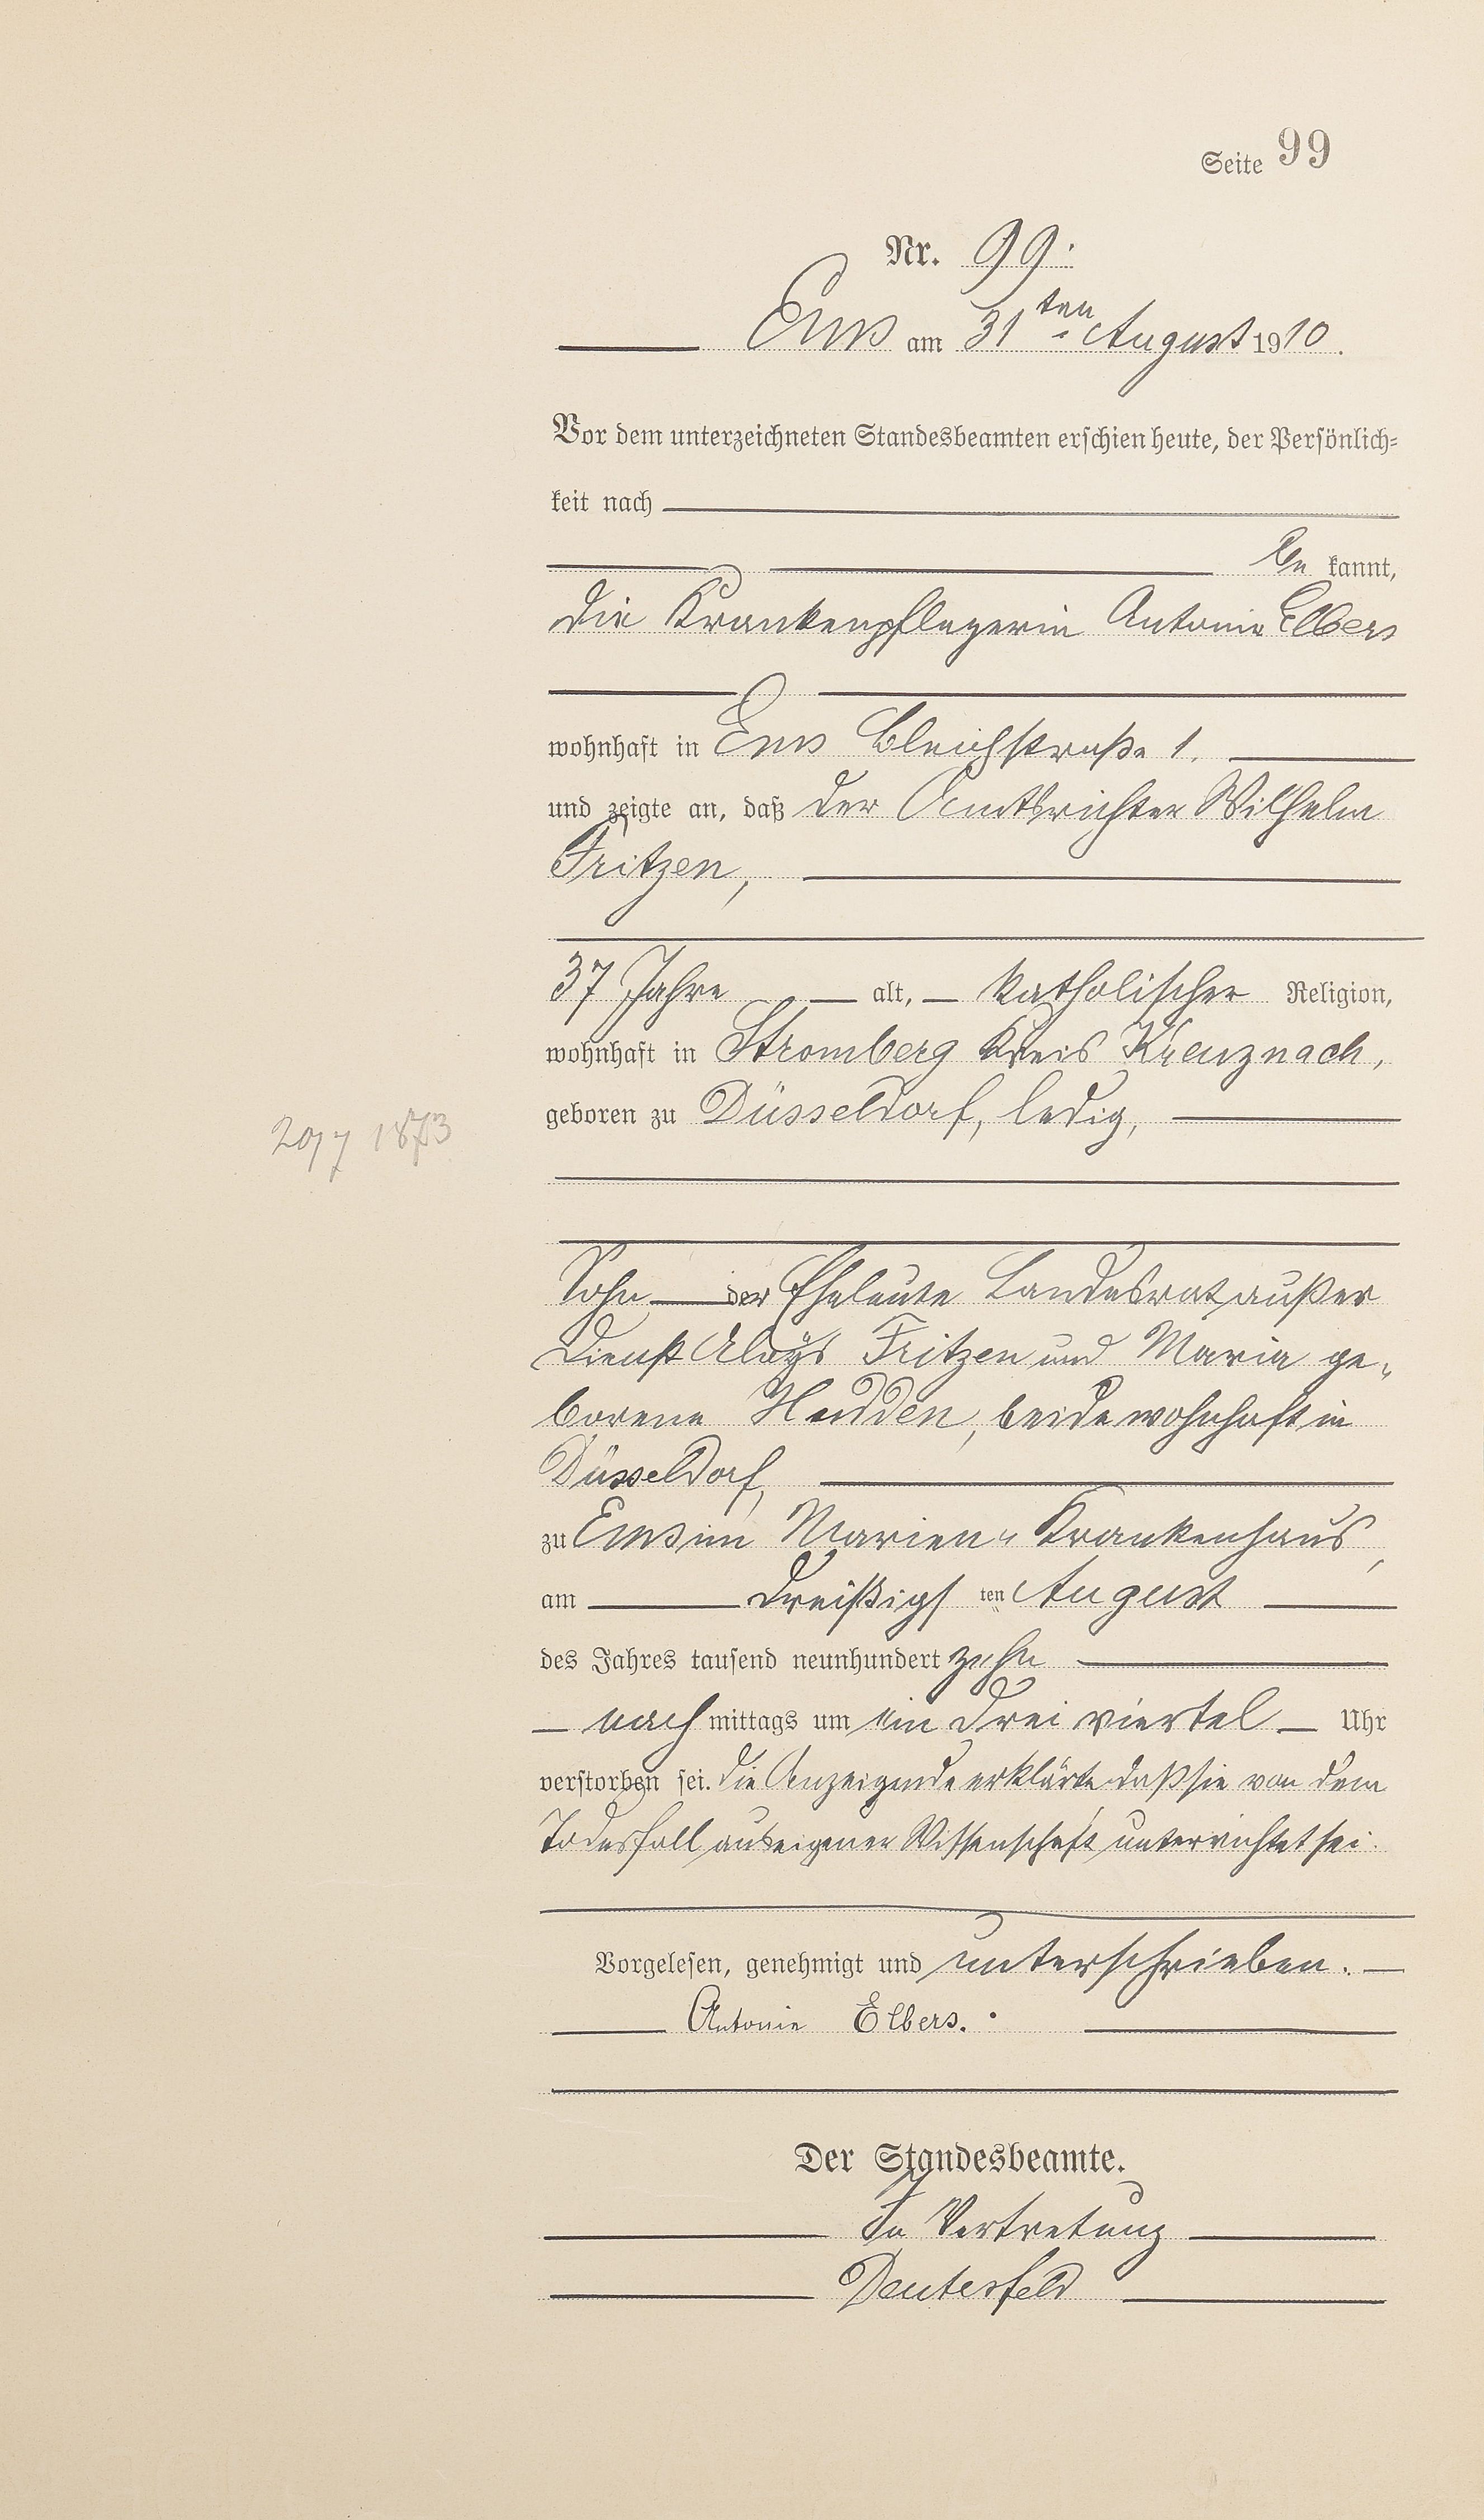 Seite 99
Nr. 99.
Ems am 31ten August 1910.
Vor dem unterzeichneten Standesbeamten erschien heute, der Persönlich-
keit nach
be kannt,
die Krankenpflegerin Antonie Elbers
wohnhaft in Ems Bleichstraße 1.
und zeigte an, daß der Amtsrichter Wilhelm
Fritzen,
37 Jahre alt, katholischer Religion,
wohnhaft in Stromberg Kreis Kreuznach,
geboren zu Düsseldorf, ledig,
20/7 1873
Sohn der Eheleute Landesrat außer
Dienst Aloÿs Fritzen und Maria ge-
borene Hedden, beide wohnhaft in
Düsseldorf,
zu Ems im Marien-Krankenhaus,
am dreißigs ten August
des Jahres tausend neunhundert zehn
nach mittags um ein drei viertel Uhr
verstorben sei. Die Anzeigende erklärte daß sie von dem
Todesfall aus eigener Wissenschaft unterrichtet sei.
Vorgelesen, genehmigt und unterschrieben.
Antonie Elbers.
Der Standesbeamte.
In Vertretung
Deutesfeld